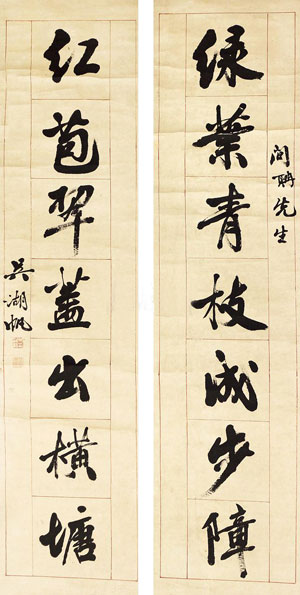 問聃先生
綠葉青枝成步障
紅苞翠蓋出橫塘
吳湖帆